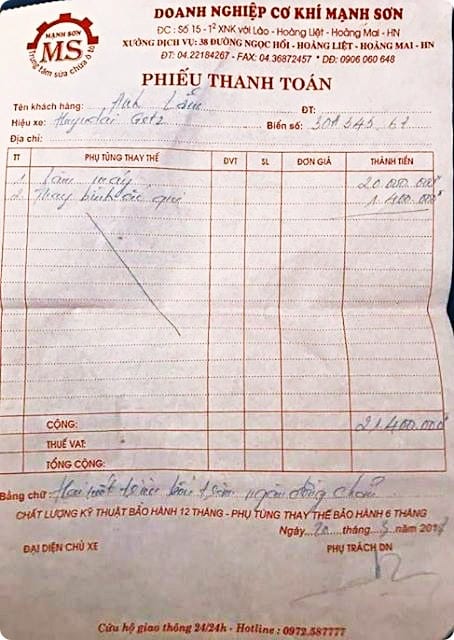 DOANH NGHIỆP CƠ KHÍ MẠNH SƠN
MẠNH SƠN
MS
Trung tâm sửa chữa ô tô
ĐC : Số 15 - 1² XNK với Lào - Hoàng Liệt - Hoàng Mai - HN
XƯỞNG DỊCH VỤ: 38 ĐƯỜNG NGỌC HỒI - HOÀNG LIỆT - HOÀNG MAI - HN
ĐT: 04.22184267 - FAX: 04.36872457 * DĐ: 0906 060 648
PHIẾU THANH TOÁN
Tên khách hàng: Anh ĐT:
Hiệu xe: Huyndai Getz Biển số: 30A 545.61
Địa chỉ:
TT PHỤ TÙNG THAY THẾ ĐVT SL ĐƠN GIÁ THÀNH TIỀN
1 Làm máy 20.000.000đ
2 Thay bình ắc qui 1.400.000đ
CỘNG: 21.400.000đ
THUẾ VAT:
TỔNG CỘNG:
Bằng chữ Hai mốt triệu bốn trăm ngàn đồng chẵn
CHẤT LƯỢNG KỸ THUẬT BẢO HÀNH 12 THÁNG - PHỤ TÙNG THAY THẾ BẢO HÀNH 6 THÁNG
Ngày 20 tháng 3 năm 201
ĐẠI DIỆN CHỦ XE PHỤ TRÁCH DN
Cứu hộ giao thông 24/24h - Hotline : 0972.587777